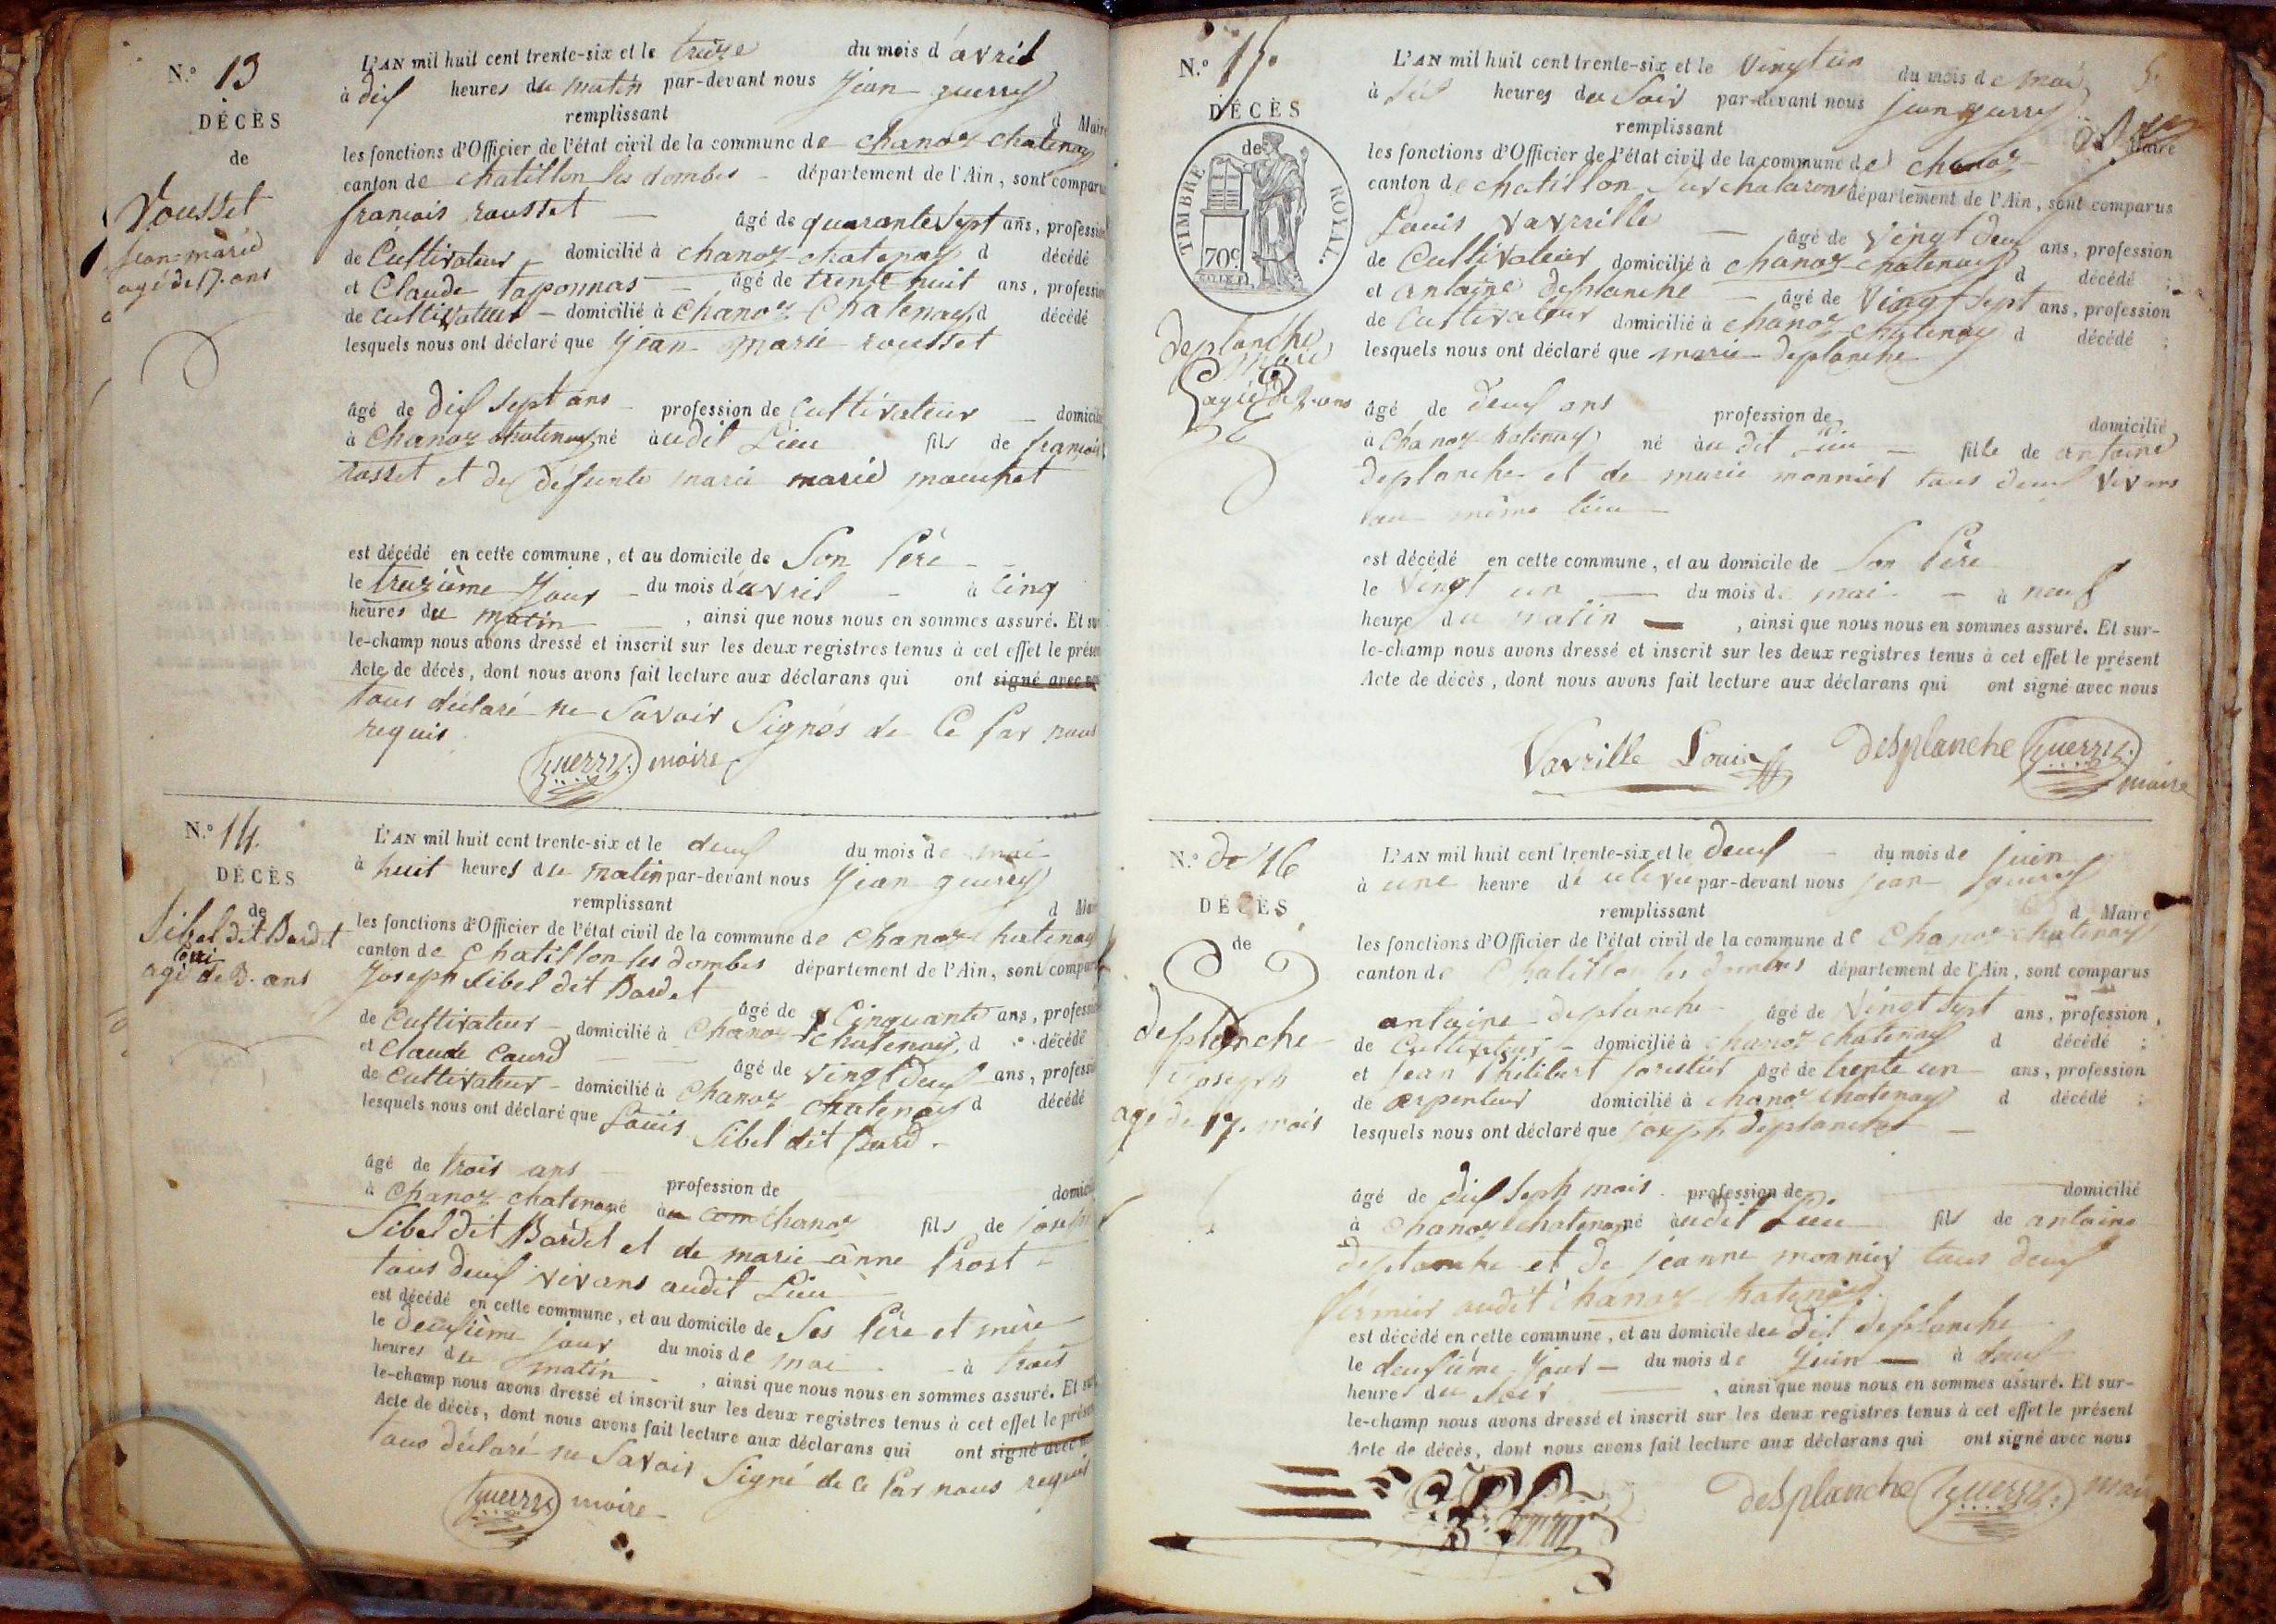 N.º 13
DÉCÈS
de
Rousset
jean-marie
agé de 17. ans
L'AN mil huit cent trente-six et le treize du mois d'avril
à dix heures du matin par-devant nous jean guerry
remplissant d Maire
les fonctions d'Officier de l'état civil de la commune de chanoz chatenay
canton de chatillon les dombes département de l'Ain, sont comparus
françois rousset âgé de quarante sept ans, profession
de Cultivateur domicilié à chanoz-chatenay d décédé
et Claude taponnas âgé de trente huit ans, profession
de cultivateur domicilié à Chanoz Chatenay d décédé
lesquels nous ont déclaré que jean marie rousset
âgé de dix sept ans profession de Cultivateur domicilié
à Chanoz chatenay né audit Lieu fils de françois
rosset et de défunte marie marie mouchet
est décédé en cette commune, et au domicile de Son Père
le treizième jour du mois d'avril à Cinq
heures du matin, ainsi que nous nous en sommes assuré. Et sur
le-champ nous avons dressé et inscrit sur les deux registres tenus à cet effet le présent
Acte de décès, dont nous avons fait lecture aux déclarans qui ont signé avec nous
tous déclaré ne Savoir Signés de Ce Par nous
requis
Guerry maire
N.º 14.
DÉCÈS
de
Sibel dit Bardet
loui
agé de 3. ans
L'AN mil huit cent trente-six et le deux du mois de mai
à huit heures du matin par-devant nous jean guerry
remplissant d Maire
les fonctions d'Officier de l'état civil de la commune de chanoz chatenay
canton de Chatillon les dombes département de l'Ain, sont comparus
Joseph Sibel dit Bardet âgé de Cinquante ans, profession
de Cultivateur domicilié à Chanoz Chatenay, d décédé
et Claude Caurd âgé de Vingt deux ans, profession
de Cultivateur domicilié à Chanoz chatenay d décédé
lesquels nous ont déclaré que Louis Sibel dit Bard
âgé de trois ans profession de domicilié
à Chanoz-chatenay né à u com Chanoz fils de joseph
Sibel dit Bardet et de marie anne Prost
tous deux vivans audit Lieu
est décédé en cette commune, et au domicile de Ses Père et mère
le deuxième jour du mois de mai à trois
heures du matin, ainsi que nous nous en sommes assuré. Et sur
le-champ nous avons dressé et inscrit sur les deux registres tenus à cet effet le présent
Acte de décès, dont nous avons fait lecture aux déclarans qui ont signé avec nous
tous déclaré ne Savoir Signé de Ce Par nous requis
Guerry maire
N.º 15.
DÉCÈS
de
TIMBRE ROYAL.
70c.
deplanche
marie
agée de 2. ans
L'AN mil huit cent trente-six et le Vingt un du mois de mai
à six heures du Soir par-devant nous jean guerry
remplissant Maire
les fonctions d'Officier de l'état civil de la commune de chanoz
canton de chatillon sur chalaronne département de l'Ain, sont comparus
Louis Vavrille âgé de Vingt deux ans, profession
de Cultivateur domicilié à chanoz-chatenay d décédé ;
et antoine deplanche âgé de Vingt sept ans, profession
de Cultivateur domicilié à chanoz-chatenay d décédé ;
lesquels nous ont déclaré que marie deplanche
âgé de deux ans profession de domicilié
à Chanoz chatenay né audit Lieu fille de antoine
deplanche et de marie monnier tous deux Vivans
au même lieu
est décédé en cette commune, et au domicile de Son Père
le Vingt un du mois de mai à neuf
heure du matin, ainsi que nous nous en sommes assuré. Et sur-
le-champ nous avons dressé et inscrit sur les deux registres tenus à cet effet le présent
Acte de décès, dont nous avons fait lecture aux déclarans qui ont signé avec nous
Vavrille Louis desplanche Guerry
maire
N.º de 16
DÉCÈS
de
deplanche
joseph
agé de 17. mois
L'AN mil huit cent trente-six et le deux du mois de juin
à une heure par-devant nous jean guerry
remplissant d Maire
les fonctions d'Officier de l'état civil de la commune de Chanoz-chatenay
canton de Chatillon les dombes département de l'Ain, sont comparus
antoine deplanche âgé de Vingt Sept ans, profession
de Cultivateur domicilié à chanoz chatenay d décédé ;
et jean Philibert foristier âgé de trente un ans, profession
de arpenteur domicilié à chanoz chatenay d décédé ;
lesquels nous ont déclaré que joseph deplanche
âgé de dix Sept mois profession de domicilié
à Chanoz chatenay né audit Lieu fils de antoine
deplanche et de jeanne monnier tous deux
fermier audit chanoz chatenay.
est décédé en cette commune, et au domicile du dit deplanche
le deuxième jour du mois de juin à deux
heure du Soir, ainsi que nous nous en sommes assuré. Et sur-
le-champ nous avons dressé et inscrit sur les deux registres tenus à cet effet le présent
Acte de décès, dont nous avons fait lecture aux déclarans qui ont signé avec nous
desplanche Guerry maire